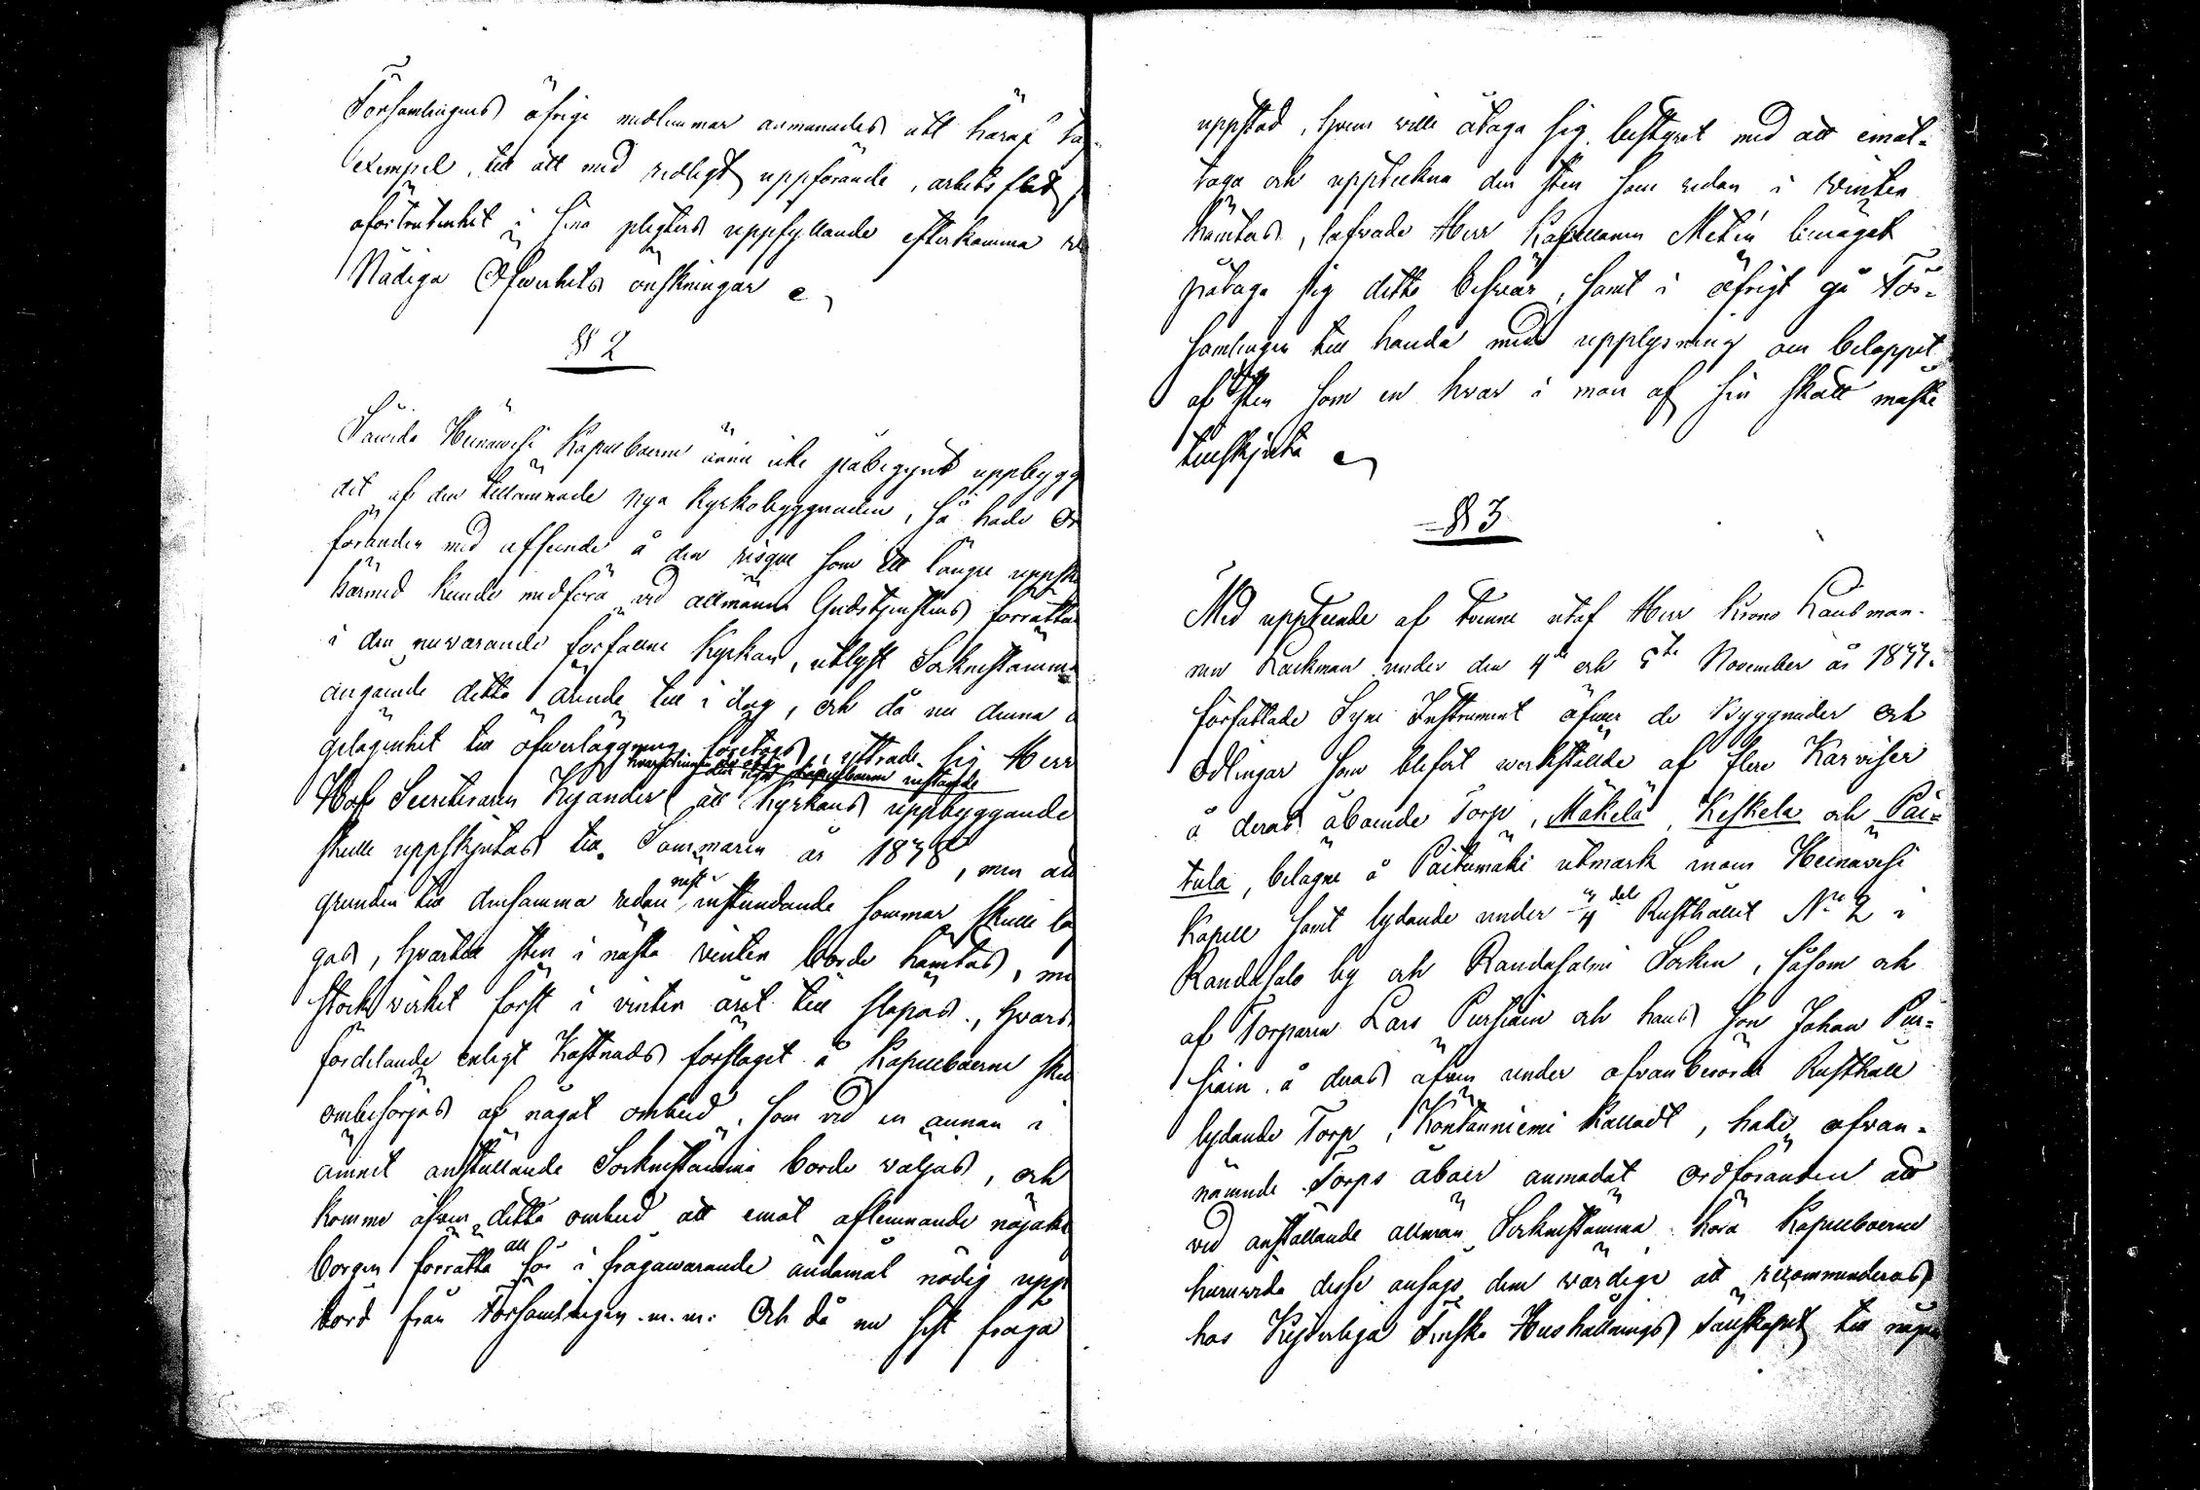 Församlingens öfrige medlemmar anmanades att häraf ta-
exempel, till att med redligt uppförande, arbets flit
oförtrutenhet i sina pligters uppfyllande efterkomma
Nådiga Öfwerhets önskningar
§ 2
Sawida Heinäwesi Kapellboerne ännu icke påbegynt uppbygg
det af den tillämnade nya kyrkobyggnaden, så hade Or
föranden med afseende å den risque som ett längre uppsk
härmed kunde medföra wid allmänna Gudstjenstens förrätta
i den nuwarande förfallne Kyrkan, utlyst Sockenstämma
angående detta ärende till i dag, och då nu denna
gelägenhet till öfwerläggning företogs, yttrade sig Herr
Hof Secreteraren Kyander att Kyrkans uppbyggande
skulle uppskjutas till Sommaren år 1838, men att
grunden till densamma redan näst instundande sommar skulle läg
gas, hwartill sten i nästa winter borde hämtas, me
stockwirket först i winter året till släpas, hwars
fördelande enligt Kostnads förslaget å Kapellboerne sku
ombesörjas af något ombud, som wid en annan i
ämnet anställande Sockenstämma borde wäljas, och
komme äfwen detta ombud att emot aflemnande nöjakt
borgen förrätta all för i frågawarande ändamål nödig upp
börd från Församlingen m. m. Och då nu sist fråga
uppstod, hwem wille åtaga sig bestyret med att emot-
taga och uppteckna den sten som redan i winter
hämtas, lofwade Herr Kapellanen Metén benäget
påtaga sig detta beswär, samt i öfrigt gå För-
samlingen till handa med upplysning om beloppet
af sten som en hwar i mån af sin skatt måste
tillskjuta
§ 3
Med uppteende af twenne utaf Herr Krono Länsman-
nen Lackman under den 4de och 5te November år 1833.
författade Syne Instrument öfwer de Byggnader och
Odlingar som blifwit werkställde af flere Karviser
å deras åboende Torp, Mäkelä, Keskelä och Pai-
tula, belägne å Paitamäki utmark inom Heinäwesi
Kapell samt lydande under ¼ del Rusthållet No 2 i
Randasalo by och Randasalmi Socken, såsom och
af Torparen Lars Pursiain och hans son Johan Pur-
siain å deras äfwen under ofvanberörde Rusthåll
lydande Torp, Kontanniemi kalladt, hade ofwan-
nämnde Torps åboer anmodat Ordföranden att
wid anställande allmän Sockenstämma höra Kapellboerne
huruwida desse ansågo dem wärdige att recommenderas
hos Kejserliga Finska Hushållnings Sällskapet till någon